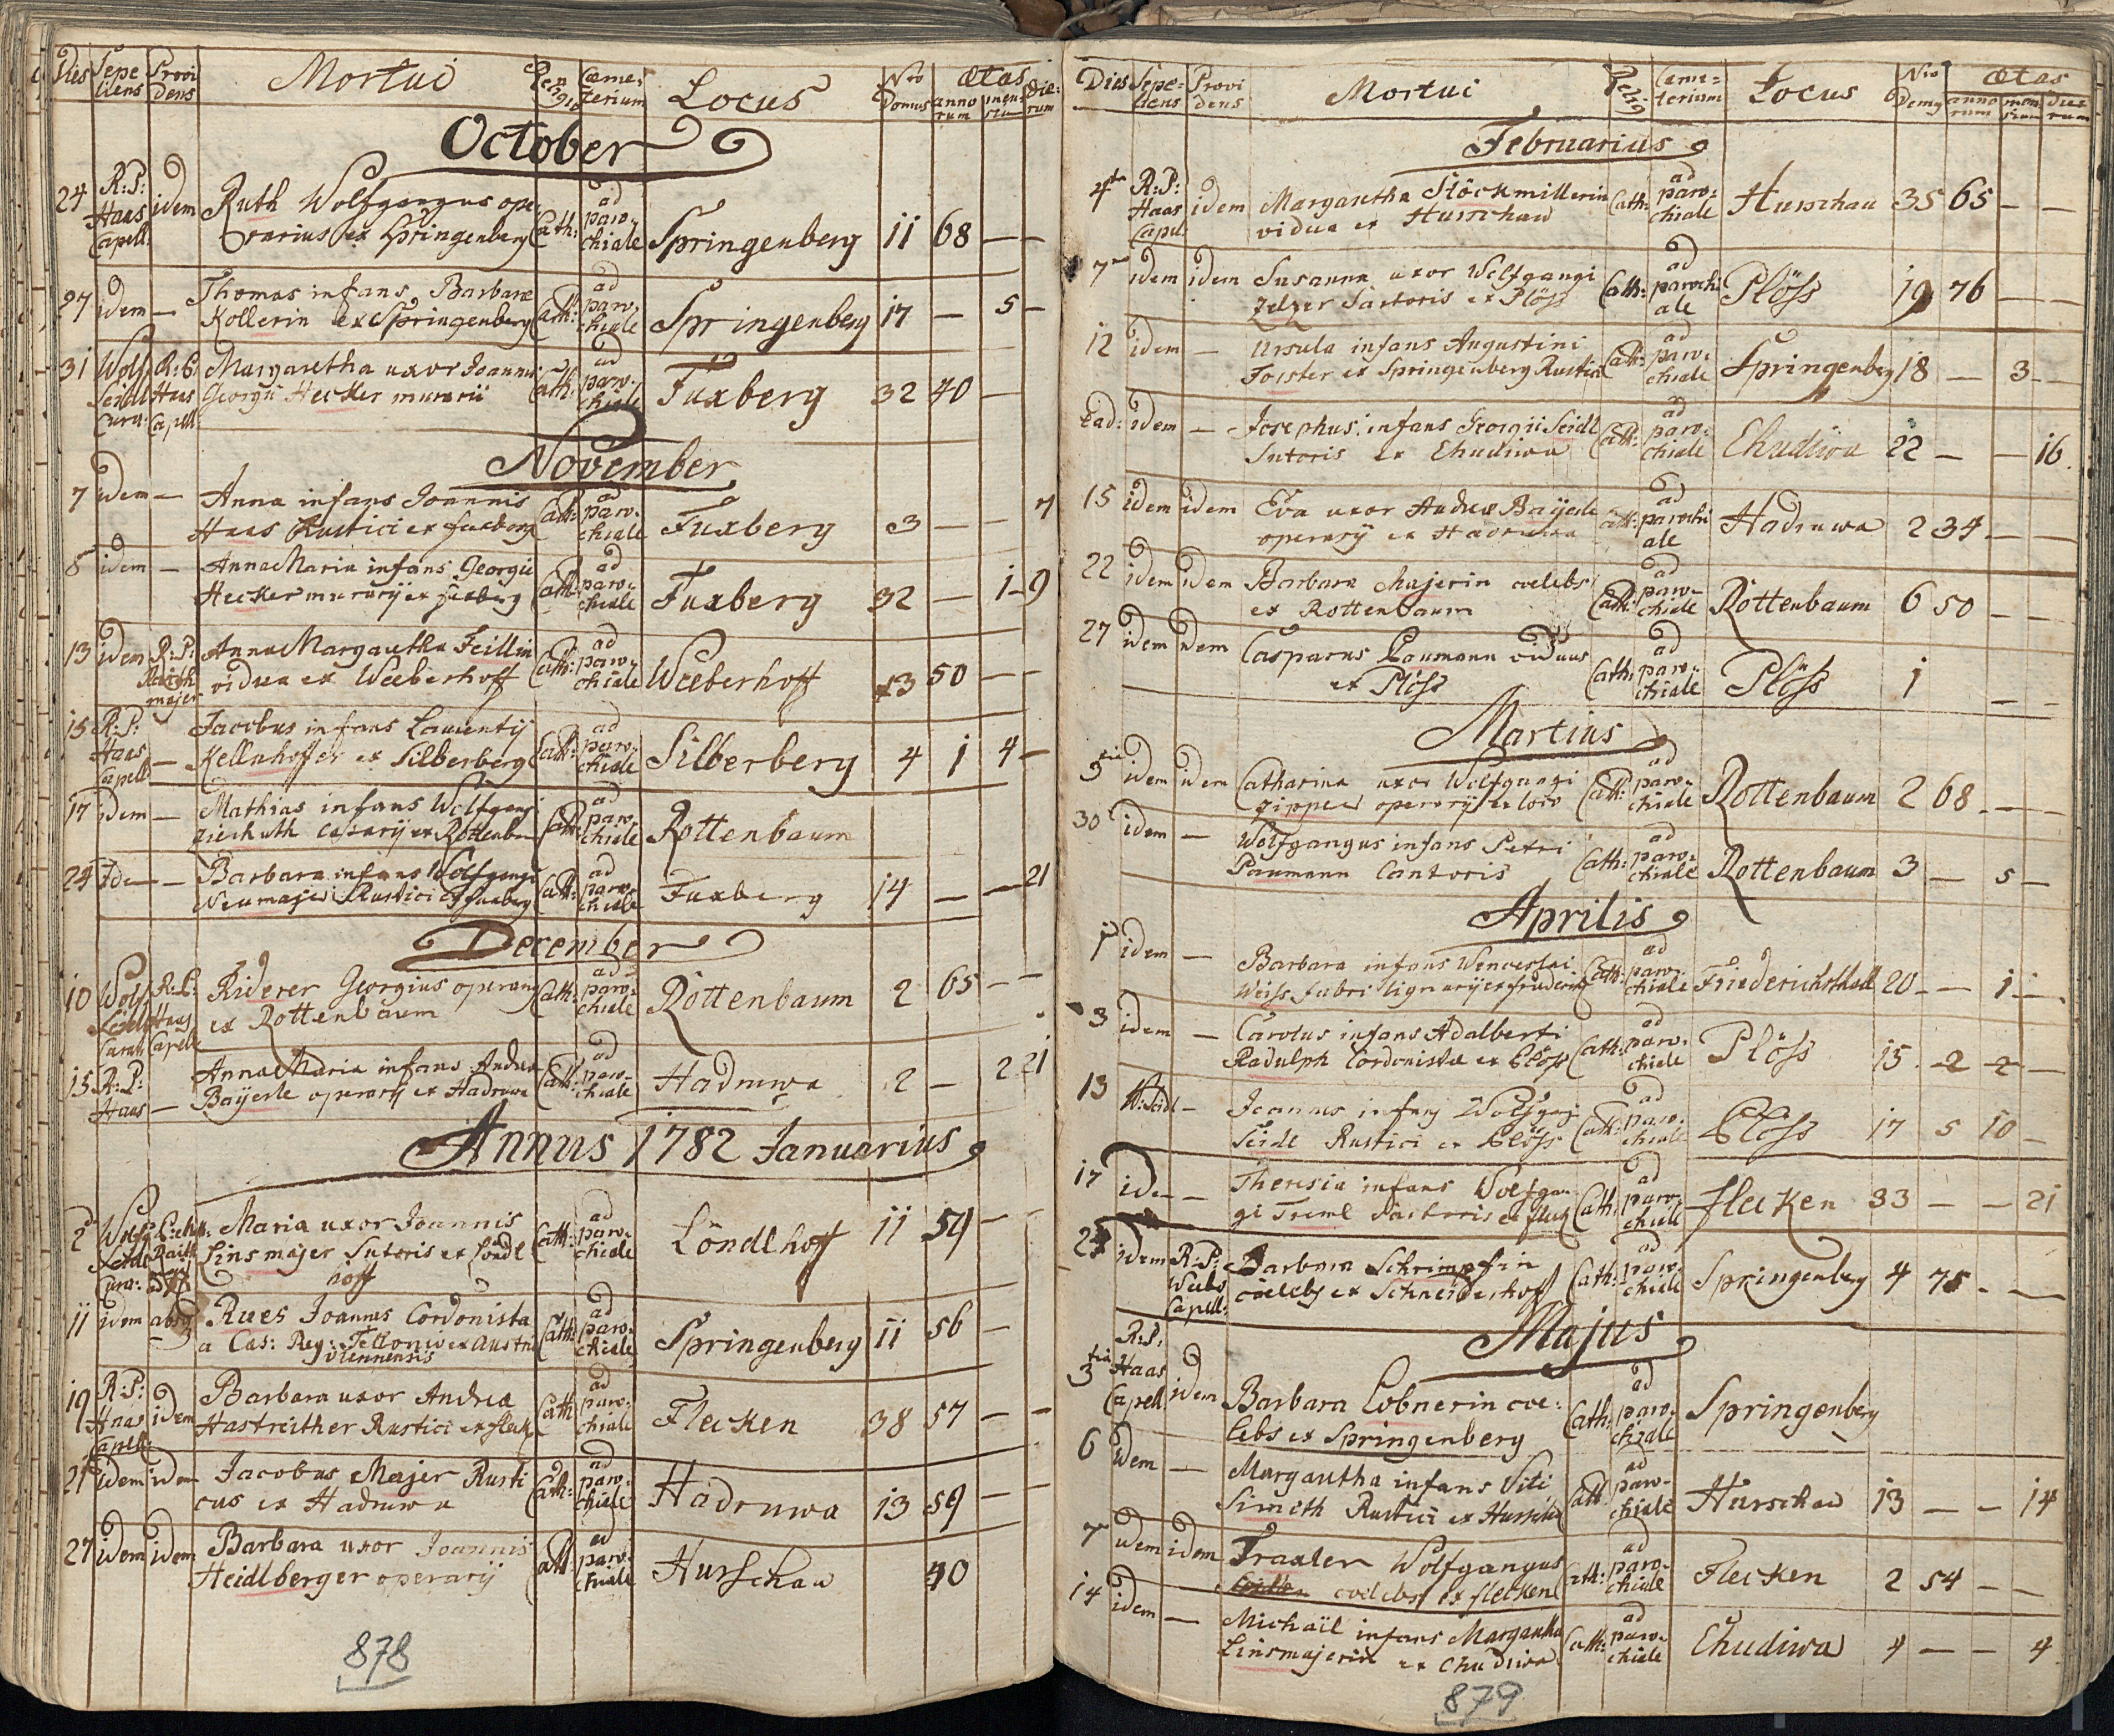 Dies Sepeliens Providens Mortui Religio Cæmeterium Locus Nro Domus Ætas annorum mensium dierum
October
24 R:P: Haas Capell: idem Ruth Wolfgangus ope
rarius ex Springenberg Cath: ad parochiale Springenberg 11 68 — —
27 idem — Thomas infans Barbaræ
Kollerin ex Springenberg Cath: ad parochiale Springenberg 17 — 5 —
31 Wolf: Seidl Cura: R:P: Haas Capell: Margaretha uxor Joannis
Georgii Hecker murarii Cath: ad parochiale Fuxberg 32 40 —
November
7 idem — Anna infans Joannis
Haas Rustici ex fuxberg Cath: ad parochiale Fuxberg 3 — — 7
8 idem — Anna Maria infans Georgii
Hecker murarij ex fuxberg Cath: ad parochiale Fuxberg 32 — 1 9
13 idem R:P: Anna Margaretha Feillin
vidua ex Weeberhoff Cath: ad parochiale Weeberhoff 13 50 — —
15 R:P: Haas Capell: — Jacobus infans Laurentij
Kellnhoffer ex Silberberg Cath: ad parochiale Silberberg 4 1 4 —
17 idem — Mathias infans Wolfgangi
ex Rottenbaum Cath: ad parochiale Rottenbaum
24 Idem — Barbara infans Wolfgangi
Neumajer Rustici ex fuxberg Cath: ad parochiale Fuxberg 14 — — 21
December
10 Wolf: Seidl R:P: Haas Capell: Riderer Georgius operarij
ex Rottenbaum Cath: ad parochiale Rottenbaum 2 65 — —
15 R:P: Haas — Anna Maria infans Andreæ
Baijerle operarij ex Hadruwa Cath: ad parochiale Hadruwa 2 — 2 21
Annus 1782 Januarius
2 Wolfg: Seidl Cura: Maria uxor Joannis
Linsmajer Sutoris ex Löndl
hoff Cath: ad parochiale Löndlhoff 11 59 — —
11 idem Rues Joannes Cordonista
a Cæs: Reg: ex Austria
Viennensis Cath: ad parochiale Springenberg 11 56 —
19 R:P: Haas Capell: idem Barbara uxor Andreæ
Hastreither Rustici ex fleck Cath: ad parochiale Flecken 38 57 — —
21 idem idem Jacobus Majer Rusti
cus ex Hadruwa Cath: ad parochiale Hadruwa 13 59 — —
27 idem idem Barbara uxor Joannis
Heidlberger operarij Cath: ad parochiale Hurschau 40
878
Dies Sepeliens Providens Mortui Religio Cæmeterium Locus Nro Domus Ætas annorum mensium dierum
Februarius
4ta R:P: Haas Capel: idem Margaretha Stöckmillerin
vidua ex Hurschau Cath: ad parochiale Hurschau 35 65 — —
7ma idem idem Susanna uxor Wolfgangi
Zelzer Sartoris ex Plöss Cath: ad parochiale Plöss 19 76 — —
12 idem — Ursula infans Augustini
Forster ex Springenberg Rustici Cath: ad parochiale Springenberg 18 — 3 —
Ead: idem — Josephus infans Georgii Seidl
Sutoris ex Chudiwa Cath: ad parochiale Chudiwa 22 — — 16
15 idem idem Eva uxor Andreæ Baijerle
operarij ex Hadruwa Cath: ad parochiale Hadruwa 2 34 — —
22 idem idem Barbara Majerin coelebs
ex Rottenbaum Cath: ad parochiale Rottenbaum 6 50 — —
27 idem idem Casparus Paumann viduus
ex Plöss Cath: ad parochiale Plöss 1 — —
Martius
3tia idem idem Catharina uxor Wolfgangi
operarij ex loco Cath: ad parochiale Rottenbaum 2 68 — —
30 idem — Wolfgangus infans Petri
Paumann Cantoris Cath: ad parochiale Rottenbaum 3 — 5 —
Aprilis
1 idem — Barbara infans Wenceslai
Weiss fabri lignarij ex friderich Cath: ad parochiale Friederichsthall 20 — 1 —
3 idem — Carolus infans Adalberti
Radulph Cordonistæ ex Plöss Cath: ad parochiale Plöss 15 2 2 —
13 W: Seidl — Joannes infans Wolfgangi
Seidl Rustici ex Plöss Cath: ad parochiale Plöss 17 5 10 —
17 idem — Theresia infans Wolfgan
gi Treml Sartoris ex fleck Cath: ad parochiale Flecken 33 — — 21
idem R:P: Weebs Capell: Barbara Schrimpfin
coelebs ex Schneiderhoff Cath: ad parochiale Springenberg 4 75 — —
Majus
3tia R:P: Haas Capell idem Barbara Lobnerin coe:
lebs ex Springenberg Cath: ad parochiale Springenberg
6 idem — Margaretha infans Viti
Simeth Rustici ex Hurschau Cath: ad parochiale Hurschau 13 — — 14
7ma idem idem Traxler Wolfgangus
coelebs ex flecken Cath: ad parochiale Flecken 2 54 — —
14 idem — Michaël infans Margaretha
Linsmajerin ex Chudiwa Cath: ad parochiale Chudiwa 4 — — 4
879